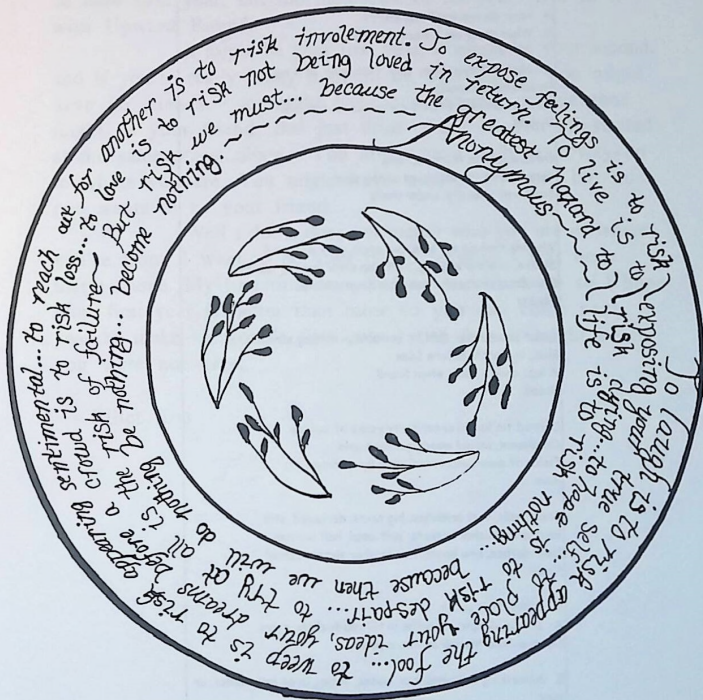 To laugh is to risk appearing the fool... to weep is to risk appearing sentimental... to reach out for another is to risk involement. To expose feelings is to risk
exposing your true self... to place your ideas, your dreams before a crowd is to risk loss... to love is to risk not being loved in return. To live is to
risk dying...to hope is to risk despair.... to try at all is the risk of failure~ But risk we must... because the greatest hazard to
life is to risk nothing... because then we will do nothing be nothing... become nothing.
Anonymous